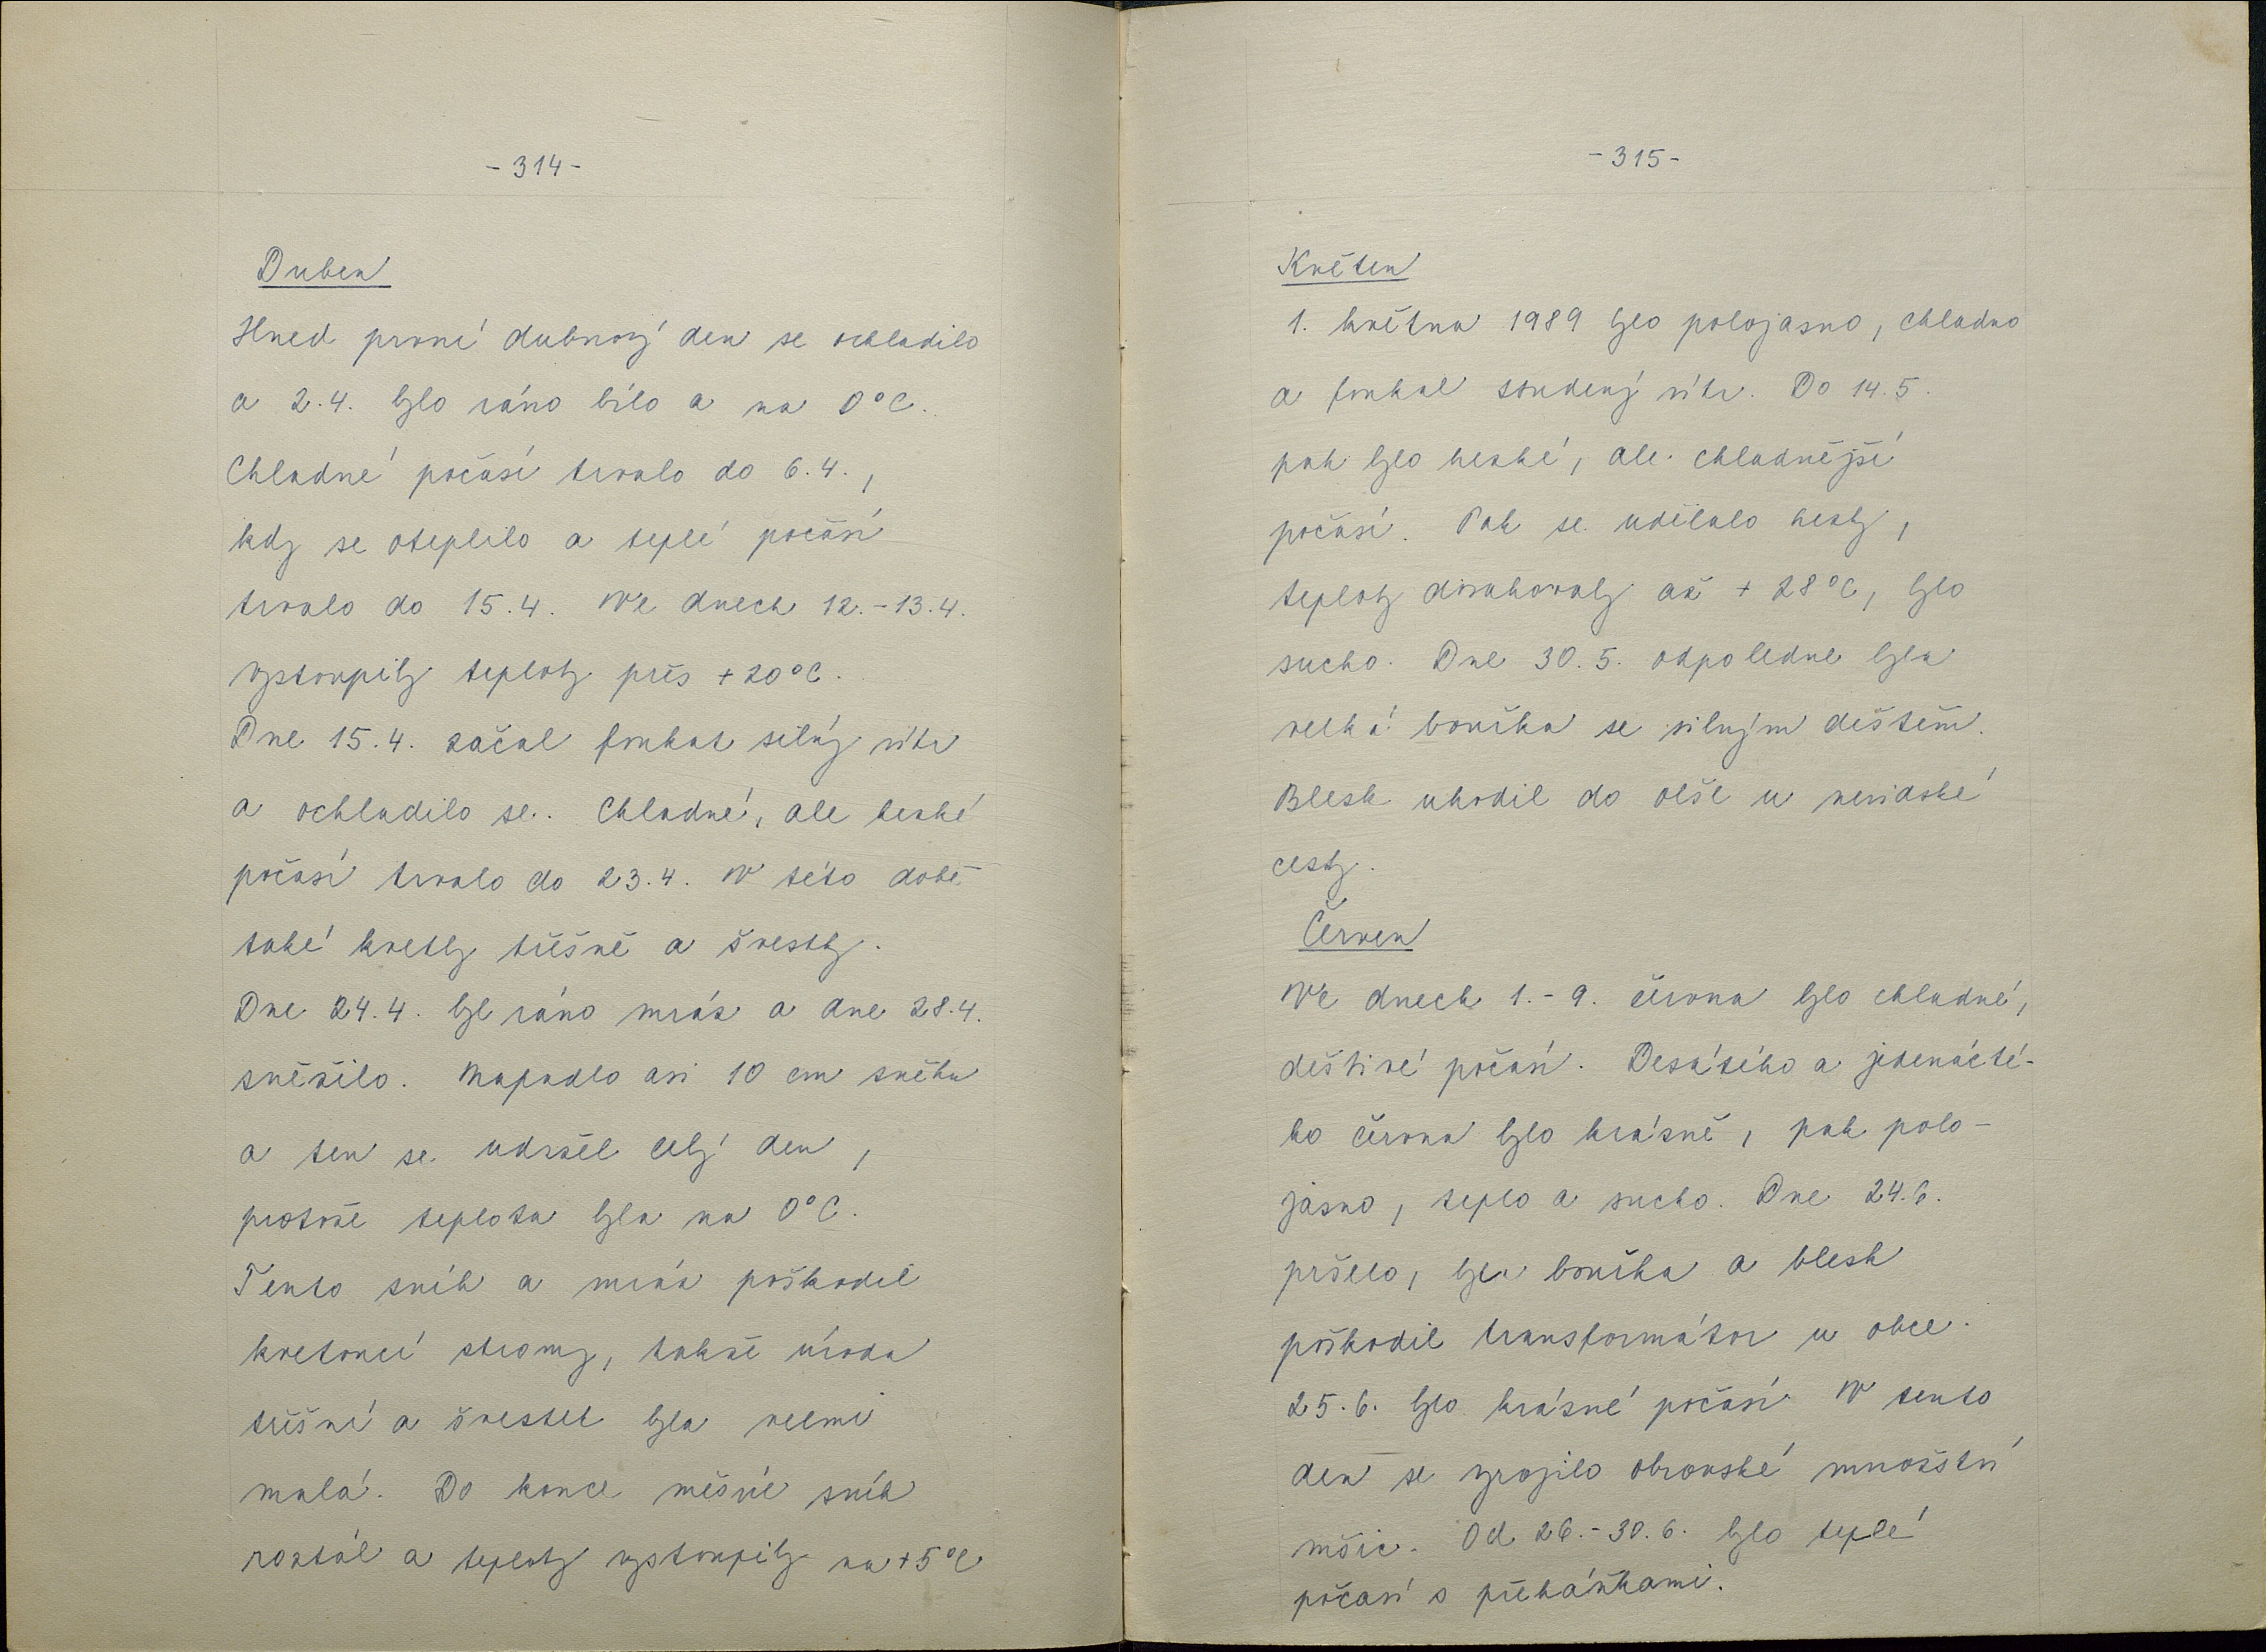 - 314 -
Duben
Hned první dubnový den se ochladilo
a 2.4. bylo ráno bílo a na 0°C.
Chladné počasí trvalo do 6.4.,
kdy se oteplilo a teplé počasí
trvalo do 15.4. Ve dnech 12.-13.4.
vystoupily teploty přes +20°C.
Dne 15.4. začal foukat silný vítr
a ochladilo se. Chladné, ale hezké
počasí trvalo do 23.4. V této době
také kvetly třešně a švestky.
Dne 24.4. byl ráno mráz a dne 28.4.
sněžilo. Napadlo asi 10 cm sněhu
a ten se udržel celý den,
protože teplota byla na 0°C.
Tento sníh a mráz poškodil
kvetoucí stromy, takže úroda
třešní a švestek byla velmi
malá. Do konce měsíce sníh
roztál a teploty vystoupily na +5°C
- 315 -
Květen
1. května 1989 bylo polojasno, chladno
a foukal studený vítr. Do 14.5.
pak bylo hezké, ale chladnější
počasí. Pak se udělalo hezky,
teploty dosahovaly až + 28°C, bylo
sucho. Dne 30.5. odpoledne byla
velká bouřka se silným deštěm.
Blesk uhodil do olše u
cesty.
Červen
Ve dnech 1.- 9. června bylo chladné,
deštivé počasí. Desátého a jedenácté-
ho června bylo krásně, pak polo-
jasno, teplo a sucho. Dne 24.6.
pršelo, byla bouřka a blesk
poškodil transformátor u obce.
25.6. bylo krásné počasí. V tento
den se vyrojilo obrovské množství
mšic. Od 26.-30.6. bylo teplé
počasí s přeháňkami.